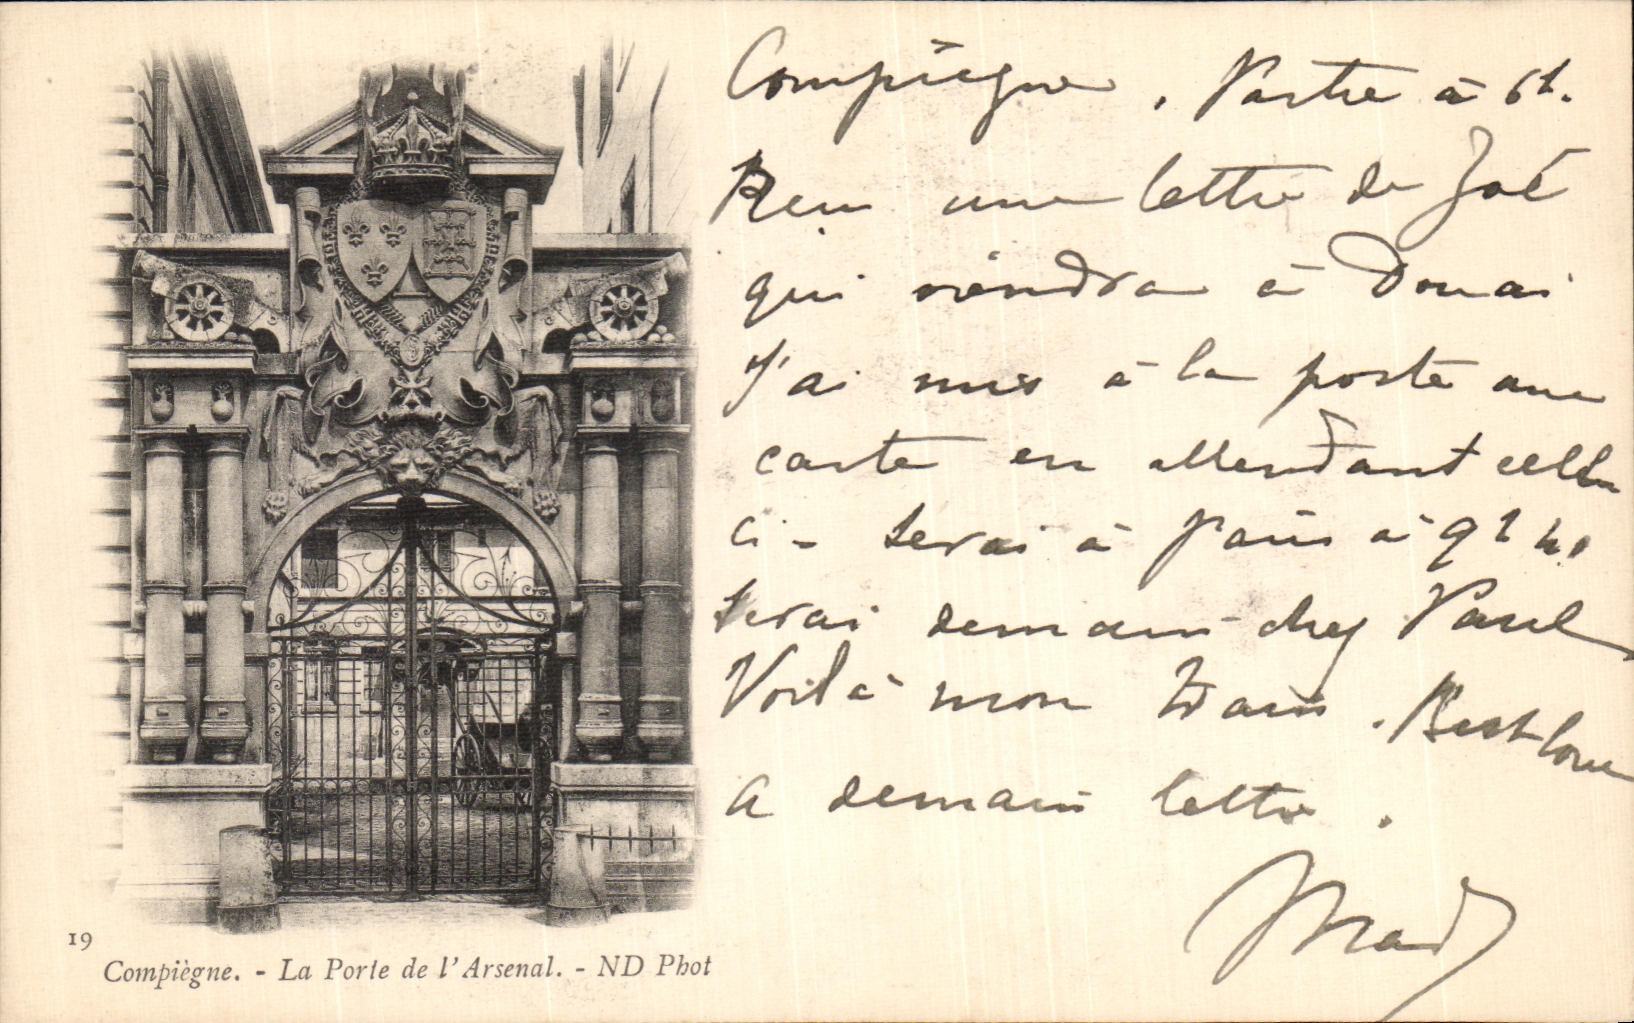 Compiègne. Partie à 6h.
Reçu une lettre de Zoé
qui viendra à Douai
J'ai mis à la poste une
carte en attendant celle
ci - serai à Paris à 9h 40
serai demain chez Paul
Voilà mon train. Best love
a demain lettre.
Mad
19
Compiègne. - La Porte de l'Arsenal. - ND Phot